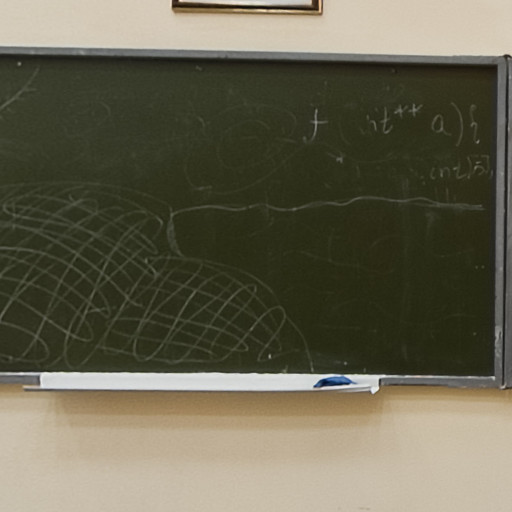 f (int** a){
int[3]